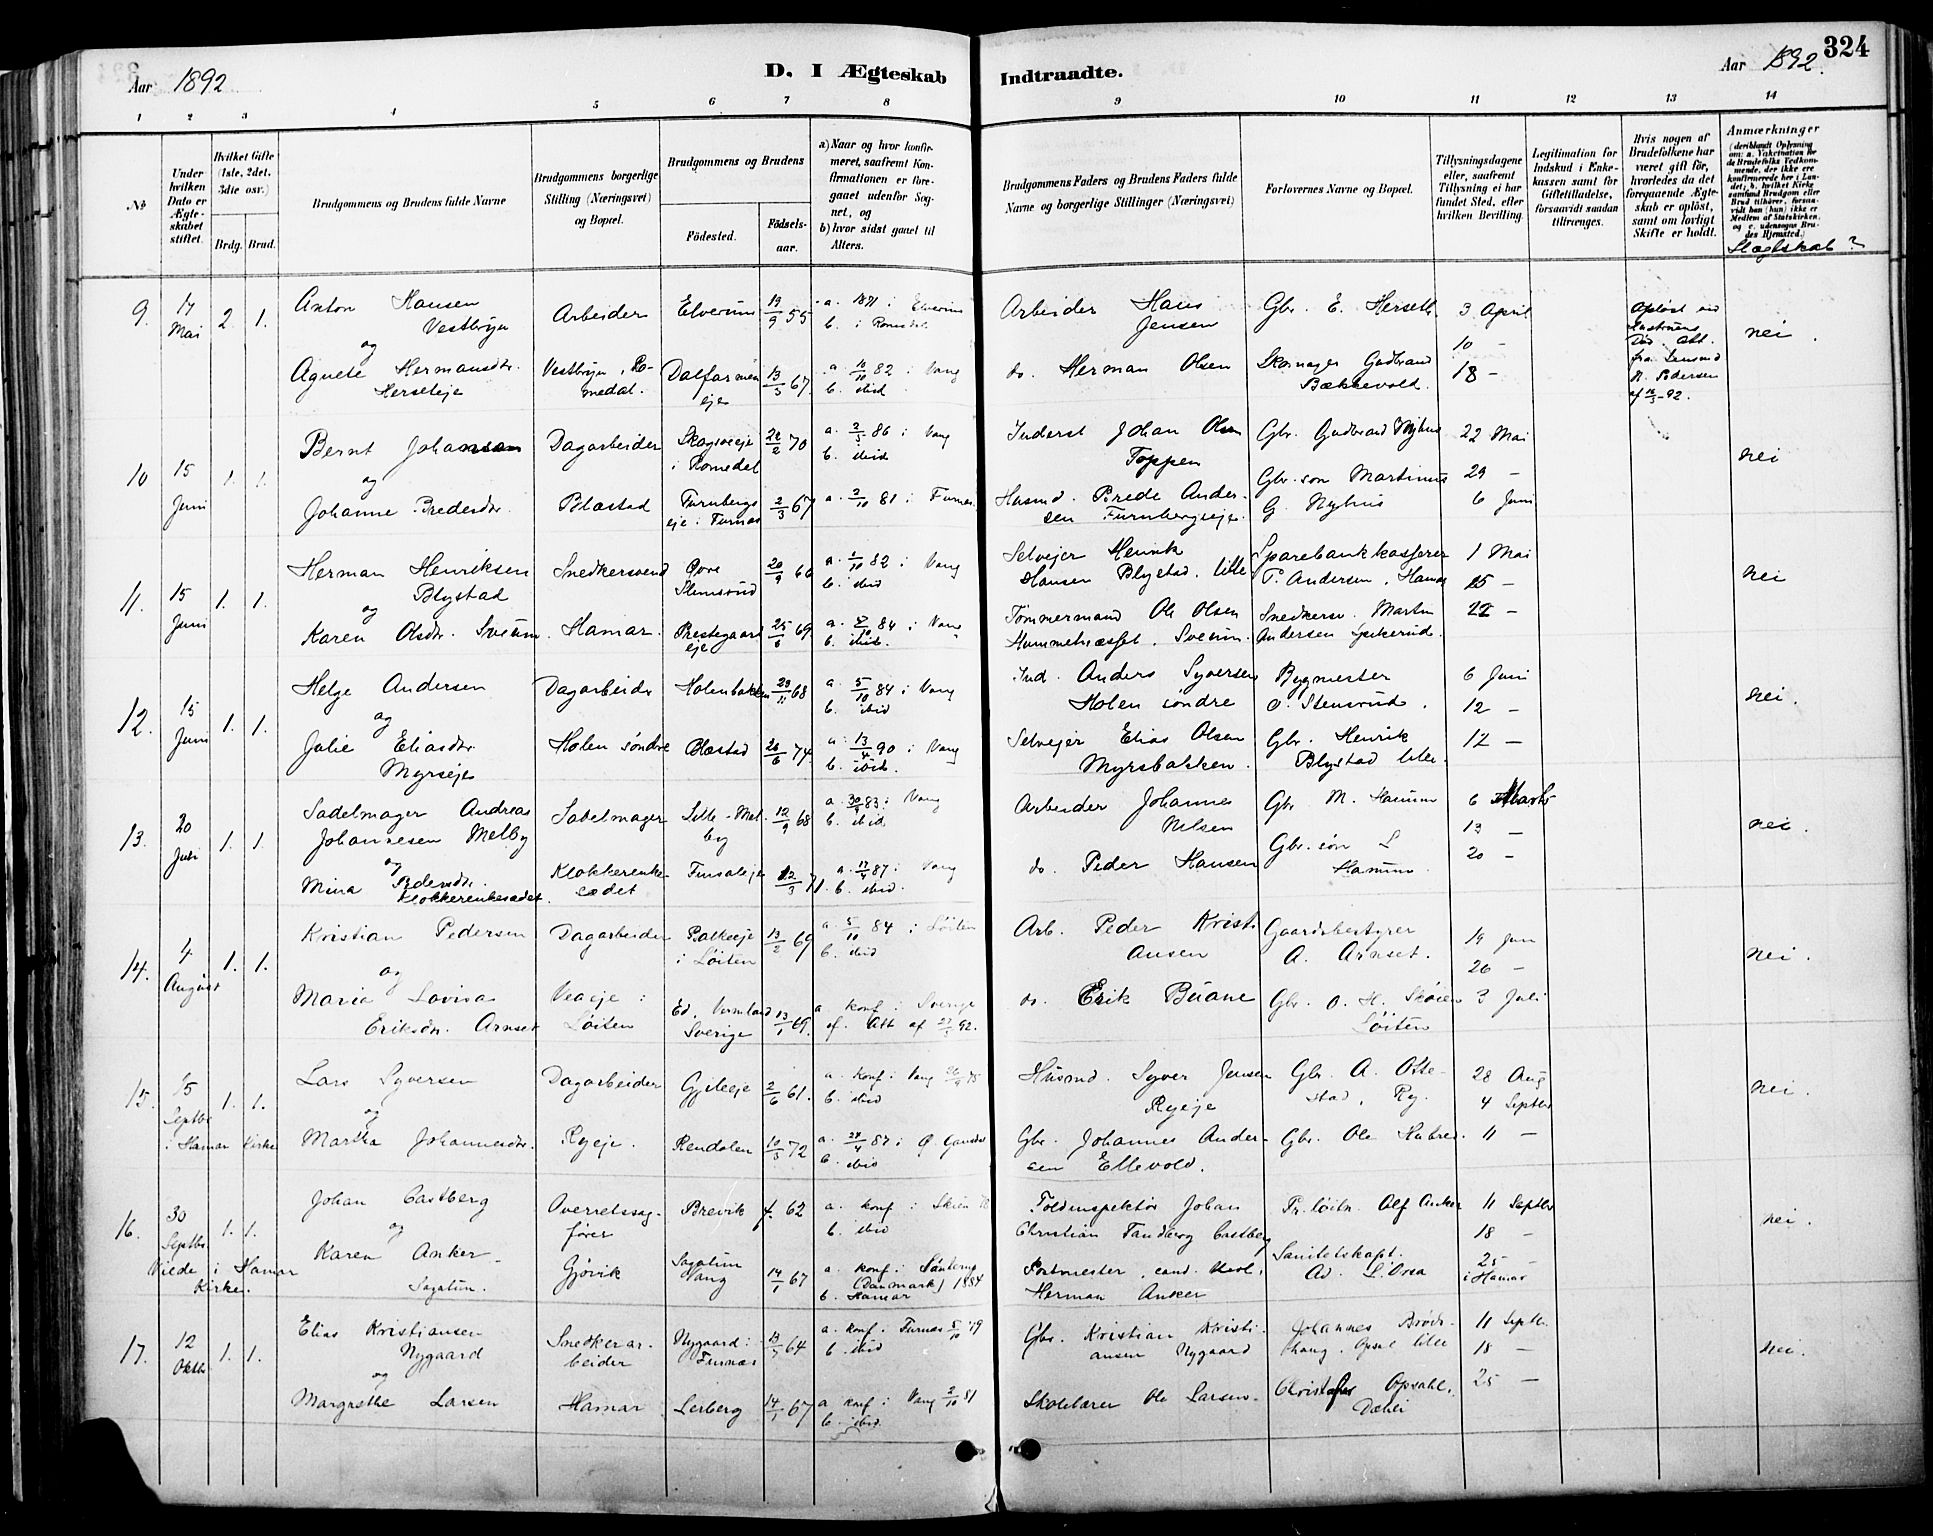 324
Aar 1892
D. I Ægteskab
Indtraadte.
Aar 1892.
1 2 3 4 5 6 7 8 9 10 11 12 13 14
No
Under hvilken Dato er Ægteskabet stiftet.
Hvilket Gifte (1ste, 2det, 3die osv.)
Brdg. Brud.
Brudgommens og Brudens fulde Navne
Brudgommens borgerlige Stilling (Næringsvei) og Bopæl.
Brudgommens og Brudens
Födested.
Födsels-aar.
a) Naar og hvor konfirmeret, saafremt Konfirmationen er foregaaet udenfor Sognet, og
b) hvor sidst gaaet til Alters.
Brudgommens Faders og Brudens Faders fulde Navne og borgerlige Stillinger (Næringsvei)
Forlovernes Navne og Bopæl.
Tillysningsdagene eller, saafremt Tillysning ei har fundet Sted, efter hvilken Bevilling.
Legitimation for Indskud i Enkekassen samt for Giftetilladelse, forsaavidt saadan tiltrænges.
Hvis nogen af Brudefolkene har været gift för, hvorledes da det foregaaende Ægteskab er oplöst, samt om lovligt Skifte er holdt.
Anmærkninger
(deriblandt Oplysning om: a. Vaktination for de Brudefolks Vedkommende, der ikke ere konfirmerede her i Landet; b. hvilket Kirkesamfund Brudgom eller Brud tilhører, forsaavidt han (hun) ikke er Medlem af Statskirken, og c. udensogns Brudes Hjemsted.)
Slægtskab?
9. 14 Mai 2. 1.
Anton Hansen
Vestbryn
og
Agnete Hermansdr.
Herseteje
Arbeider
Vestbryn, Romedal.
Elverum 19/9 55
Dalfarmeneje 13/5 67.
a. 1871 i Elverum
b. i Romedal
a. 10/10 82 i Vang
b. ibid
Arbeider Hans
Jensen
do. Herman Olsen
Gbr. E. Herseth
Skomager Gudbrand
Bækkevold.
3 April
10 -
18 -
Opløst ved
Hustruens
Død. Att.
fra Lensmd
N. Pedersen
nei.
10 15 Juni 1. 1.
Bernt Johansen
og
Johanne Bredesdr.
Dagarbeider
Blæstad
Skogsveje
i Romedal 22/2 70
Furubergs
eje i Furnæs 2/3 67
a. 2/5 86 i Vang
b. ibid
a. 2/10 81 i Furnæs.
Inderst Johan Olsen
Toppen
Husmd. Brede Andersen Furubergseje.
Gbr. Gudbrand Nyhus
Gbr. søn Martinus
G. Nyhus
22 Mai
29 -
6 Juni
nei
11. 15 Juni 1. 1.
Herman Henriksen
Blystad
og
Karen Olsdr. Sveum
Snedkersvend
Hamar.
Øvre
Stensrud 20/9 66
Prestegaards
eje 25/6 69
a. 1/10 82 i Vang
b. ibid
84 i Vang
b. ibid.
Selvejer Henrik
Hansen Blystad, lille
Tømmermand Ole Olsen
Hummelnæsset, Sveum.
Sparebankkasserer
P. Andersen, Hamar
Snedkersv. Martin
Andersen Spikerud.
1 Mai
15 -
22 -
nei
12. 15 Juni 1. 1.
Helge Andersen
og
Julie Eliasdr.
Myrseje
Dagarbeider
Holen søndre
Holenbakken 29/11 68
Blæstad 26/6 74.
a. 5/10 84 i Vang
b. ibid
a. 13/4 90 i Vang
b. ibid.
Ind. Anders Syversen
Holen søndre
Selvejer Elias Olsen
Myrsbakken.
Bygmester
O. Stensrud.
Gbr. Henrik
Blystad lille.
6 Juni
12 -
17 -
nei.
13. 20 Juli 1. 1.
Sadelmager Andreas
Johannesen Melby
og
Mina Pedersdr.
Klokkerenkesædet.
Sadelmager
Klokkerenkesædet
Lille-Melby 12/9 68
Finsaleje 12/3 71.
a. 30/9 83 i Vang
b. ibid
a. 17/4 87 i Vang
b. ibid.
Arbeider Johannes
Nilsen
do. Peder Hansen
Gbr M. Hamum
Gbr. søn L
Hamum
6 Marts
13 -
20 -
nei.
14. 4. August 1. 1.
Kristian Pedersen
og
Maria Lovisa
Eriksdr. Arnset
Dagarbeider
Veaeje i
Løiten
Bakkeeje
i Løiten 13/2 69
Ed, Vermland
Sverige 13/1 69.
a. 5/10 84 i Løiten
b. ibid
a konf. i Sverige
cf. Att af 27/3 92.
Arb. Peder Kristiansen
do. Erik Buane
Gaardsbestyrer
A. Arnset.
Gbr. O. H. Skøien
Løiten
19 Juni
26 -
3 Juli
nei.
15. 15 Septbr i Hamar Kirke 1. 1.
Lars Syversen
og
Martha Johannesdr.
Dagarbeider
Ryeje.
Gjileeje 2/6 61.
Rendalen 10/3 72
a. konf. i Vang
b. ibid
a. 24/4 87 i Ø. Gausdal
b. ibid
Husmd. Syver Jensen
Ryeje
Gbr. Johannes Andersen Ellevold.
Gbr. A. Ottestad, Ry.
Gbr. Ole Hubred.
28 Aug
4 Septbr
11 -
nei.
16. 30 Septbr 1. 1.
Viede i Hamar
Kirke.
Johan Castberg
og
Karen Anker
Sagatun.
Overretssagfører
Gjøvik
Brevik 62
Sagatun
Vang 14/1 67
a. konf. i Skien 78
b. ibid
a. konf. i
(Danmark) 1884
b. Hamar
Toldinspektør Johan
Christian Tandberg Castberg
Postmester, cand. theol.,
Herman Anker
Pr. løitn. Alf Anker
Sanitetskapt.
11 Septbr
18 -
25 -
i Hamar
nei.
17. 12 Oktbr. 1. 1.
Elias Kristiansen
Nygaard
og
Margrethe Larsen
Snedkerarbeider
Hamar
Nygaard i
Furnæs 64
Lerberg 14/1 67
a. konf. Furnæs 5/10 79
b. ibid
a konf i Vang 2/10 81
b. ibid.
Gbr. Kristian Kristiansen Nygaard
Skolelærer Ole Larsen
Johannes
Opsal lille
Christofer Opsahl,
11 Septb.
18 -
25 -
nei.